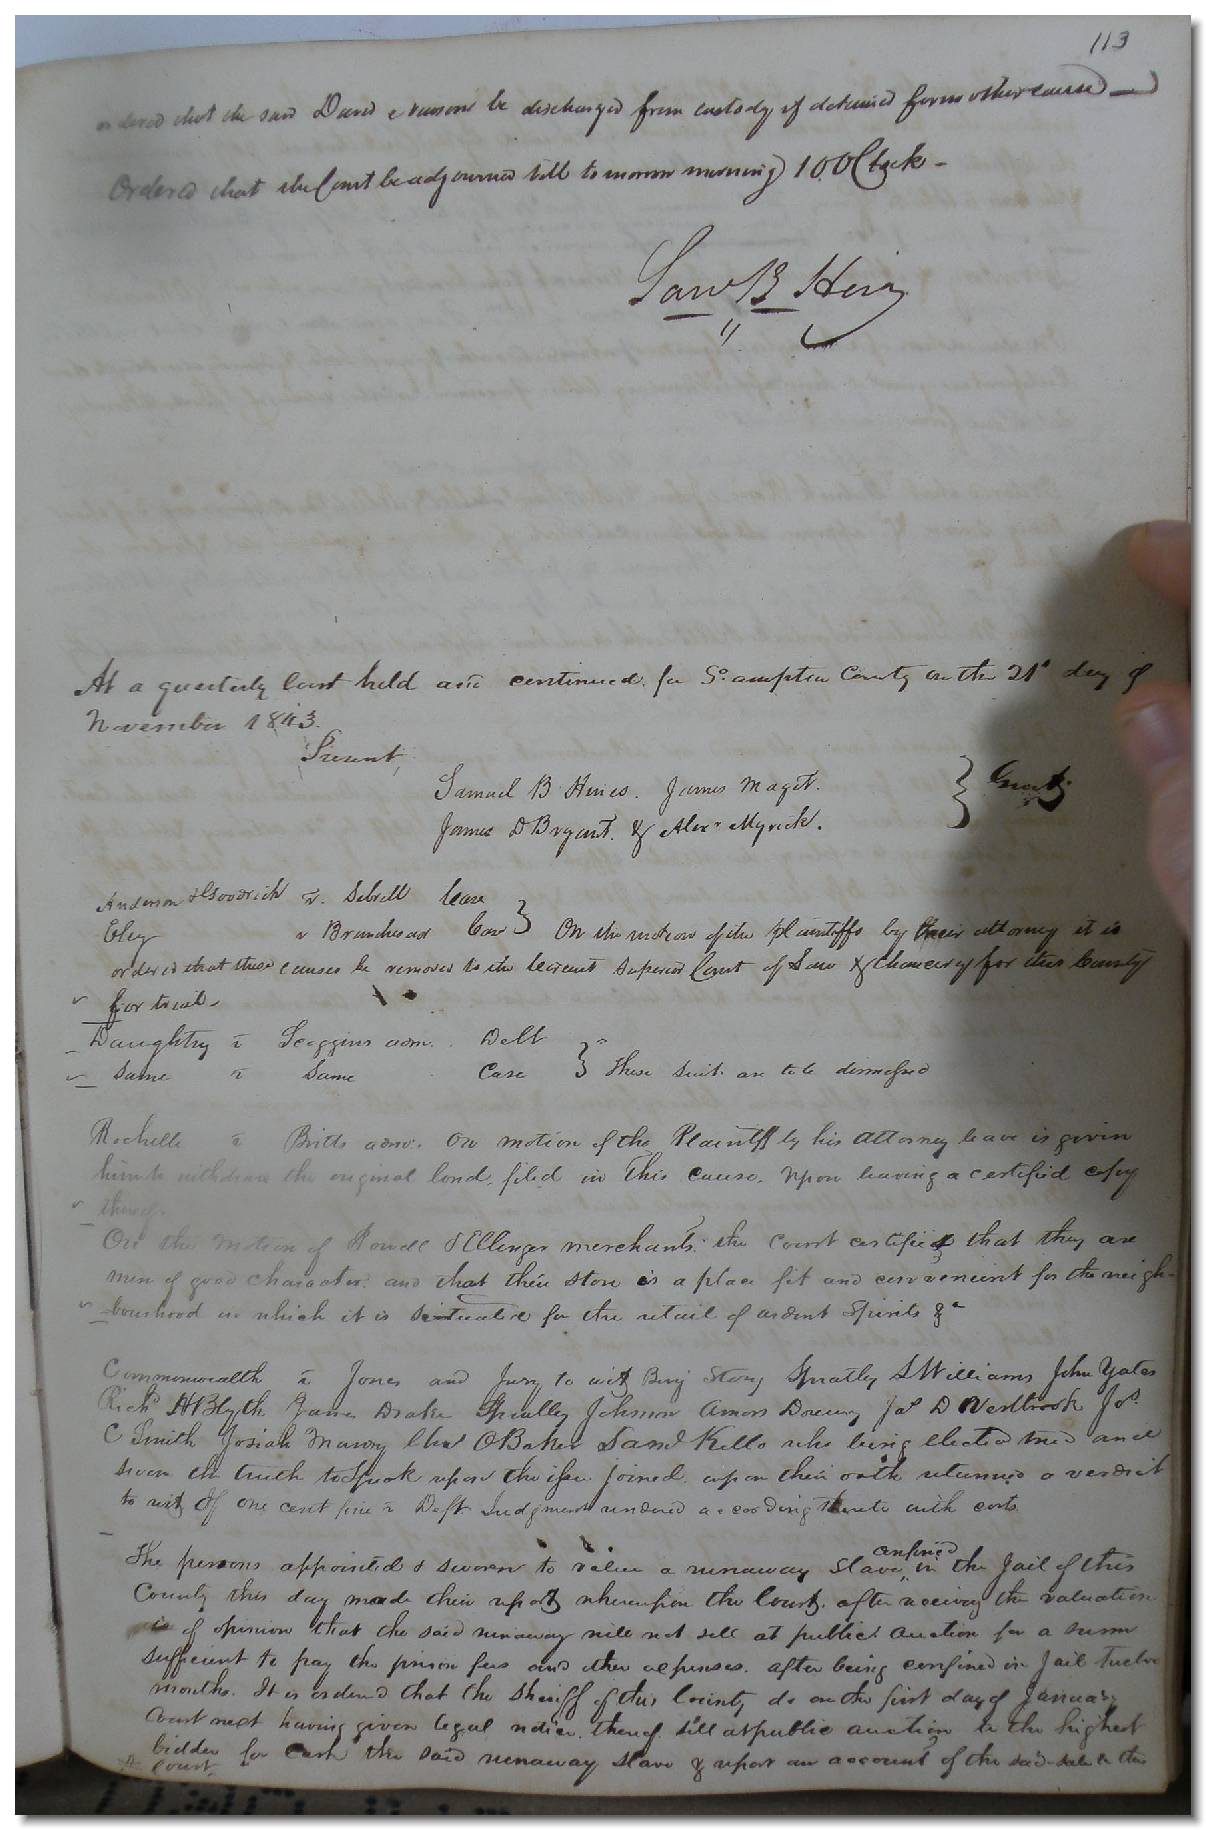 113
ordered that the said David be discharged from custody if detained for no other cause
Ordered that the Court be adjourned till tomorrow morning 10 OClock -
Saml B Hines
At a quarterly Court held and continued for So.ampton County on the 21st day of
November 1843.
Present,
Samuel B Hines. James Maget.
James D Bryant. & Alexr Myrick. } Gents
Anderson & Goodrich vs. Sebrell Case
Eley vs Branch Case } On the motion of the plaintiffs by their attorney it is
ordered that these causes be removed to the Circuit Superior Court of Law & Chancery for this County
for trial.
Daughtry vs Scoggins adm. Debt
Same vs Same Case } These suits are to be dismissed
Rochelle vs Britts admr. On motion of the Plaintiff by his attorney leave is given
him to withdraw the original bond, filed in this cause, upon leaving a certified copy
thereof.
On the motion of Powell & Ellinger merchants. the Court certifies that they are
men of good character. and that their store is a place fit and convenient for the neigh-
bourhood in which it is situate for the retail of ardent Spirits &c
Commonwealth vs Jones and Jury to wit Benj Story Gratly S Williams John Yates
Richd H Blyth James Drake Johnson Amos Dorsey Jas D Westbrook Jos.
C Smith Josiah Murray Chas OBaker Saml Kello who being elected tried and
sworn the truth to speak upon the issue joined. upon their oath returned a verdict
to wit Of one cent fine vs Deft. Judgment rendered according thereto with costs
The persons appointed & sworn to value a runaway slave confined in the Jail of this
County this day made their report whereupon the Court. after receiving the valuation
is of opinion that the said runaway will not sell at public auction for a sum
sufficient to pay the prison fees and other expenses. after being confined in Jail twelve
months. It is ordered that the Sheriff of this County do on the first day of January
Court next having given legal notice thereof. sell at public auction to the highest
bidder for Cash the said runaway slave & report an account of the said sale to this
court.